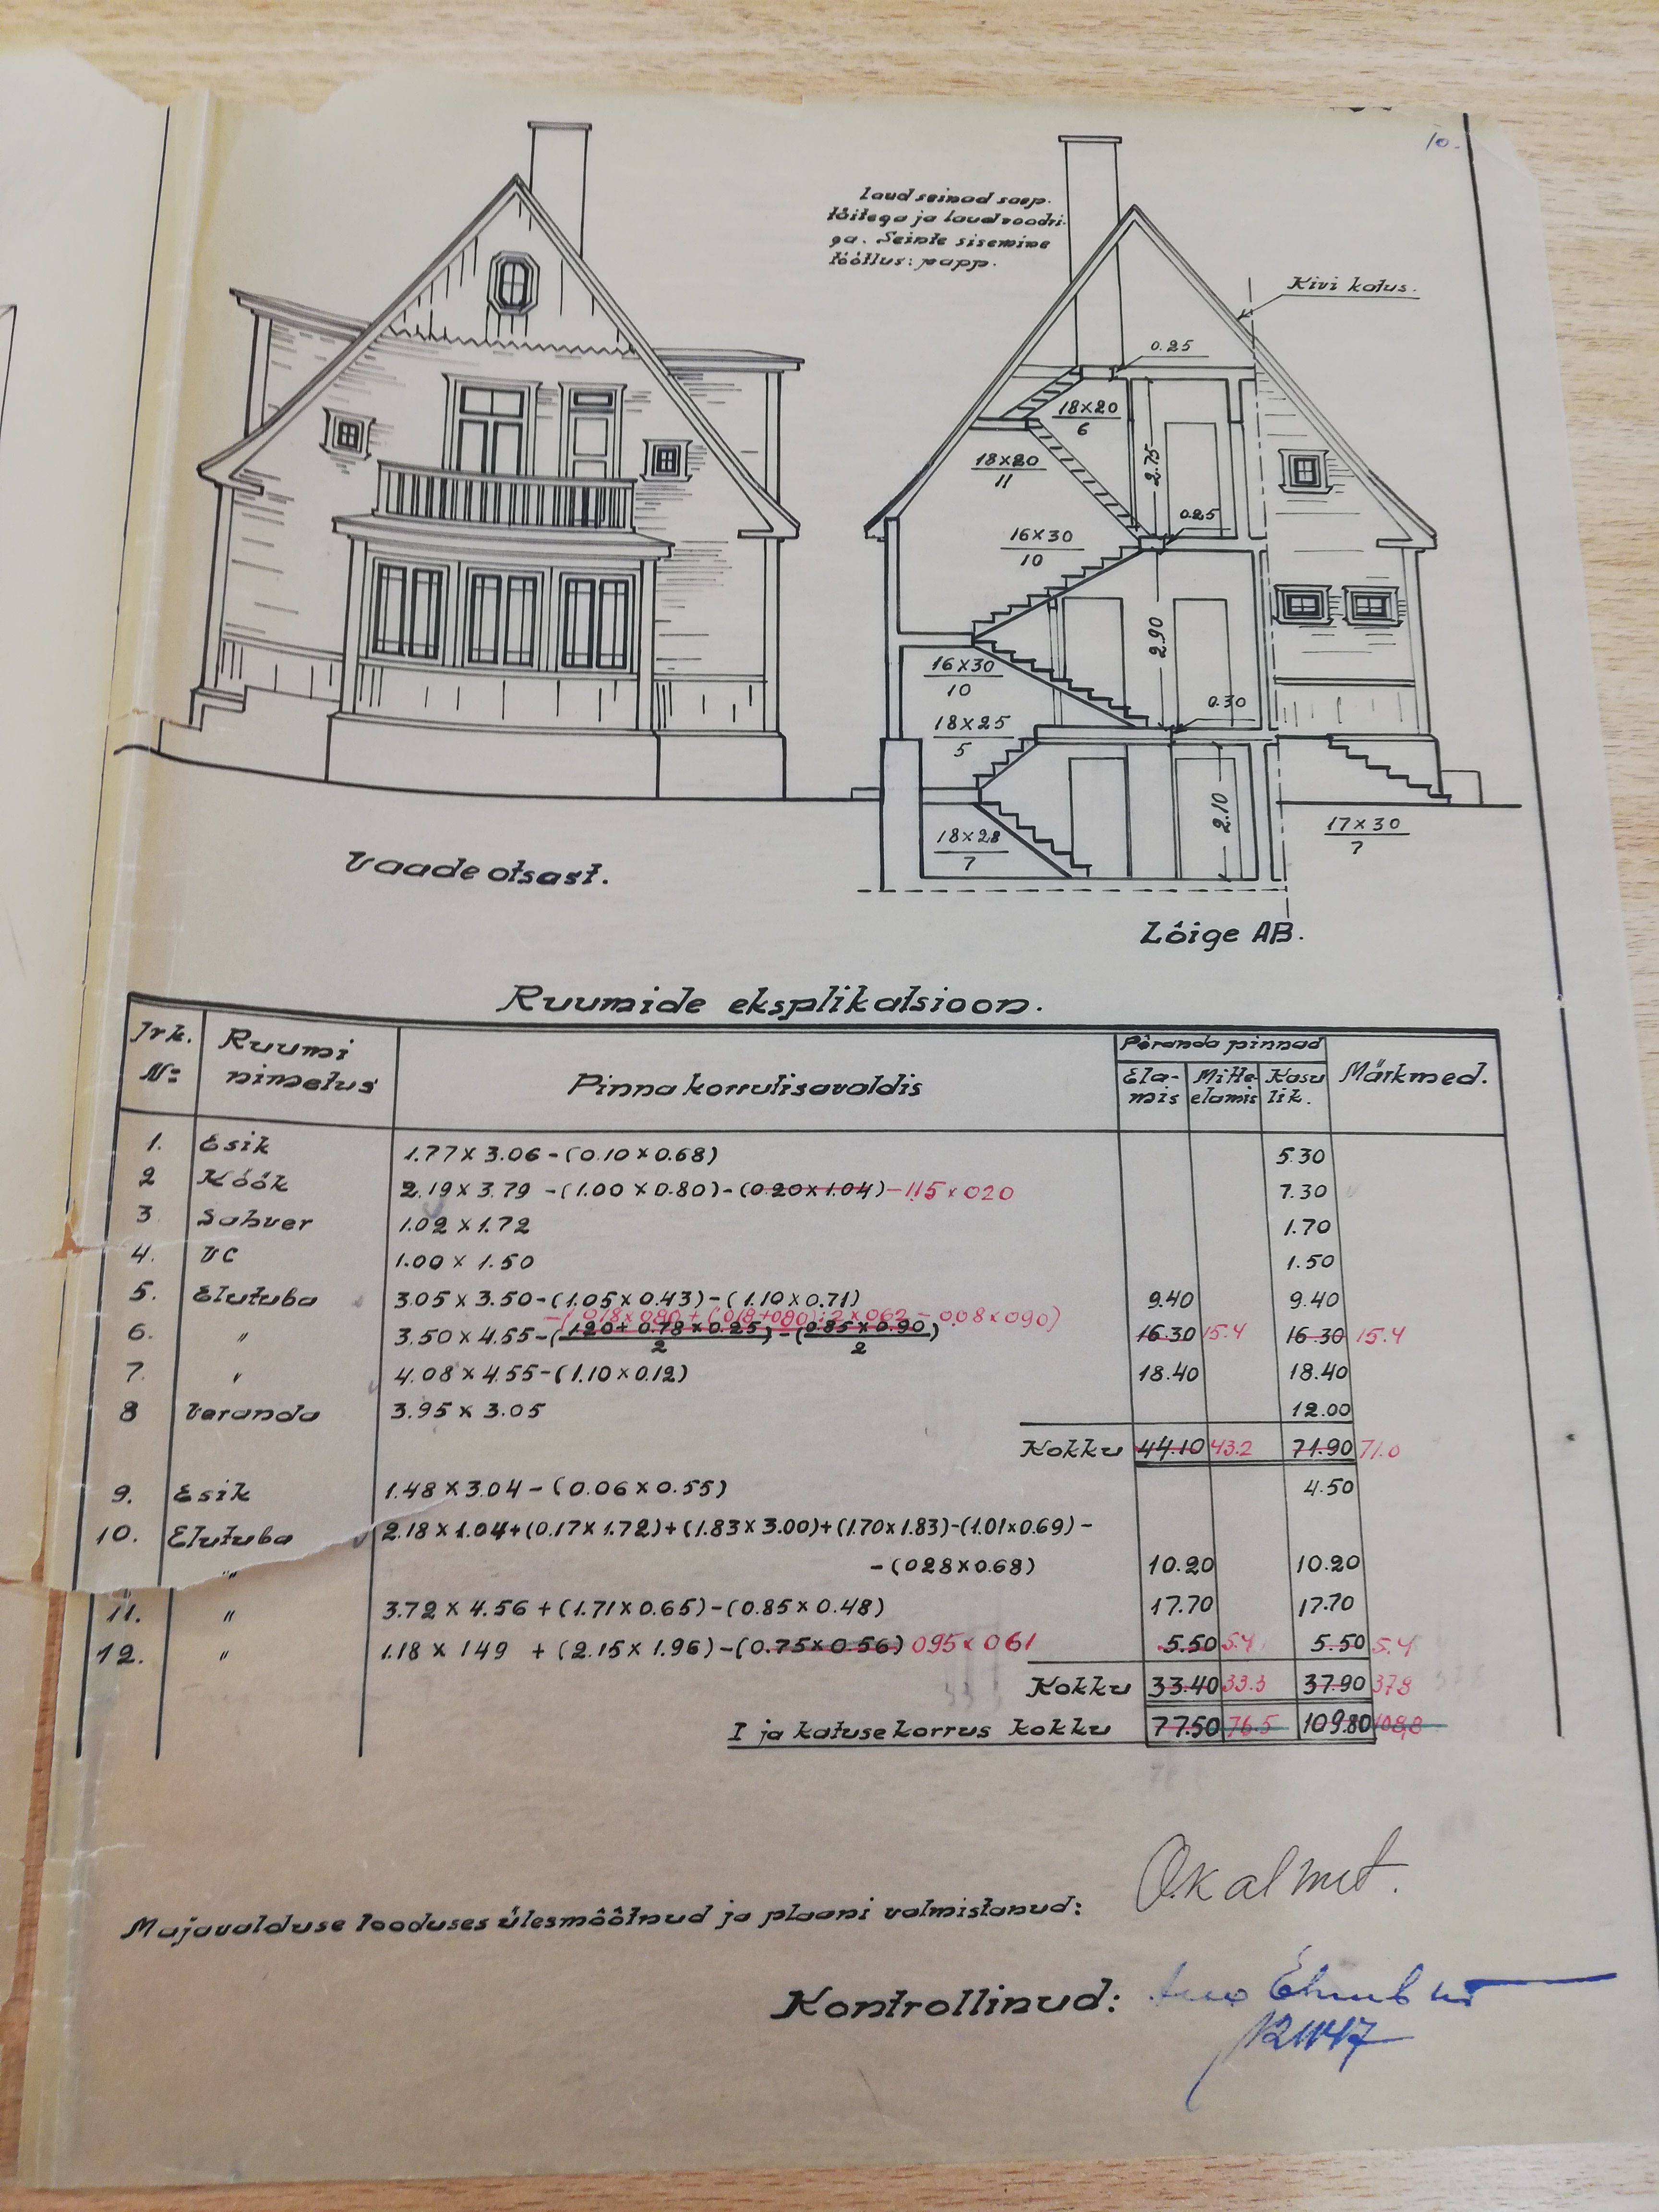 10.
Laud seinad saep.
täitega ja laudvoodri-
ga. Seinte sisemine
töötlus: papp.
Kivi katus.
0.25
18×20
6
18×20
11
2.75
0.25
16×30
10
2.90
16×30
10
0.30
18×25
5
2.10
18×28
7
17×30
7
Vaade otsast.
Lõige AB.
Ruumide eksplikatsioon.
Jrk. Nr. Ruumi nimetus Pinna korrutisavaldis Põranda pinnad Märkmed.
Ela- Mitte Kasu
mis elamis lik.
1. Esik 1.77×3.06-(0.10×0.68) 5.30
2 Köök 2.19×3.79 -(1.00×0.80)-(0.20×1.04)-1.15×020 7.30
3. Sahver 1.02×1.72 1.70
4. VC 1.00×1.50 1.50
5. Elutuba 3.05×3.50-(1.05×0.43)-(1.10×0.71) 9.40 9.40
-(018×080+(018+080):2×062-008×090)
6. " 3.50×4.55-(1.20+0.78×0.25)-(0.85×0.90) 16.30 15.4 16.30 15.4
2 2
7. " 4.08×4.55-(1.10×0.12) 18.40 18.40
8 Veranda 3.95×3.05 12.00
Kokku 44.10 43.2 71.90 71.0
9. Esik 1.48×3.04-(0.06×0.55) 4.50
10. Elutuba 2.18×1.04+(0.17×1.72)+(1.83×3.00)+(1.70×1.83)-(1.01×0.69)-
" -(028×0.68) 10.20 10.20
11. " 3.72×4.56+(1.71×0.65)-(0.85×0.48) 17.70 17.70
12. " 1.18×149 +(2.15×1.96)-(0.75×0.56) 095×061 5.50 5.4 5.50 5.4
Kokku 33.40 33.3 37.90 378
I ja katusekorrus kokku 77.50 76.5 109.80 108,8
Majavalduse looduses ülesmõõtnud ja plaani valmistanud: O.Kalmet.
Kontrollinud: